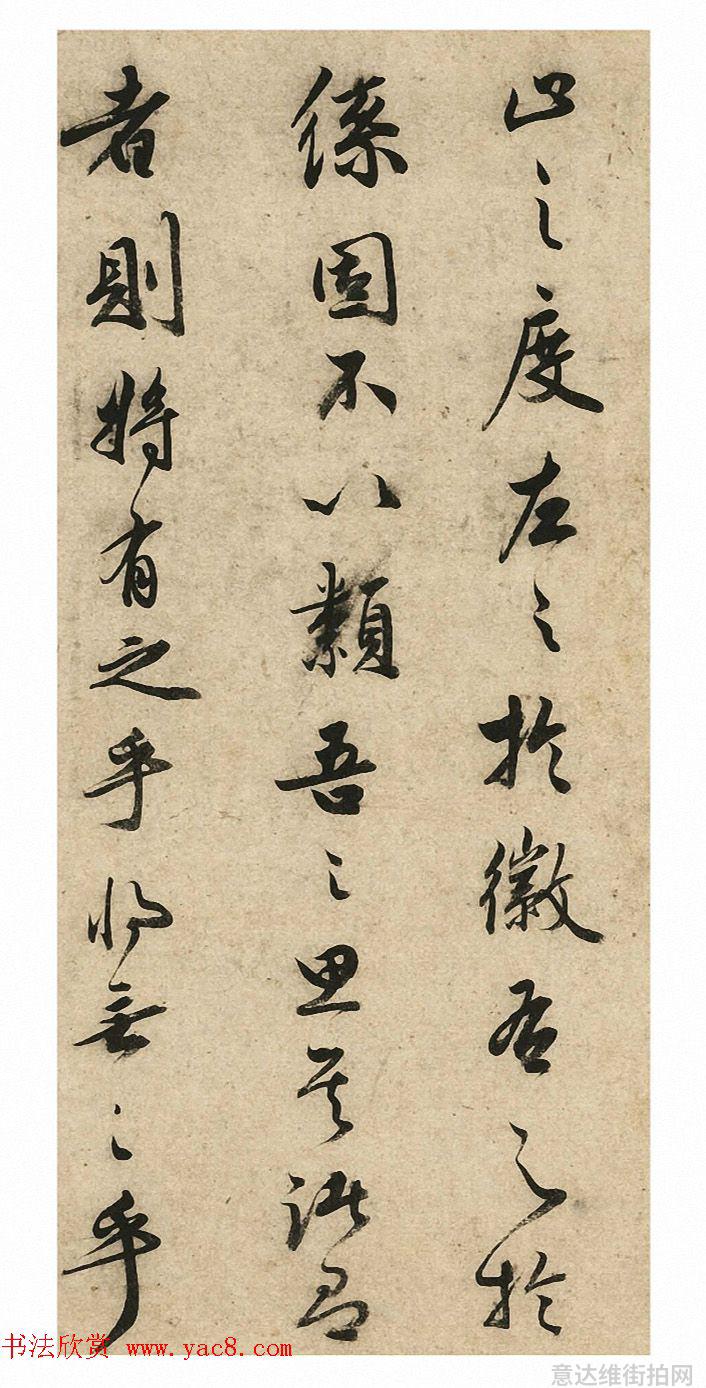 止之度左之於徽右之於
固不以類吾之思其
者則將有之乎將無之乎
书法欣赏 www.yac8.com
意达维街拍网